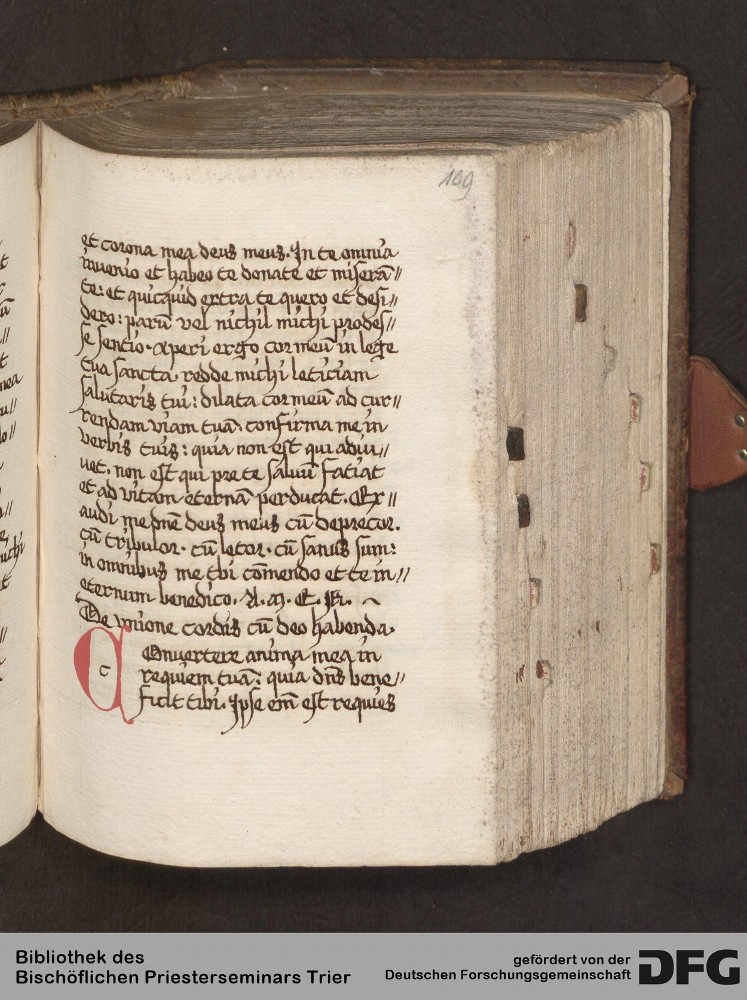 109
et corona mea deus meus. In te omnia
inuenio et habeo te donate et miserā//
te: et quicquid extra te quero et desi//
dero: parū vel nichil michi prodes//
se sentio. Aperi ergo cor meū in lege
tua sancta. redde michi leticiam
salutaris tui: dilata cor meū ad cur//
rendam viam tuā. confirma me in
verbis tuis: quia non est qui adiu//
uet. non est qui pre te saluū faciat
et ad vitam eternā perducat. Ex//
audi me dn̄e deus meus cū deprecor.
cū tribulor. cū letor. cū sanus sum:
in omnibus me tibi cōmendo et te in//
eternum benedico. A. M. E. N.
De vnione cordis cū deo habenda.
Conuertere anima mea in
requiem tuā: quia dn̄s bene//
ficit tibi. Ipse em̄ est requies
Bibliothek des
Bischöflichen Priesterseminars Trier
gefördert von der
Deutschen Forschungsgemeinschaft
DFG